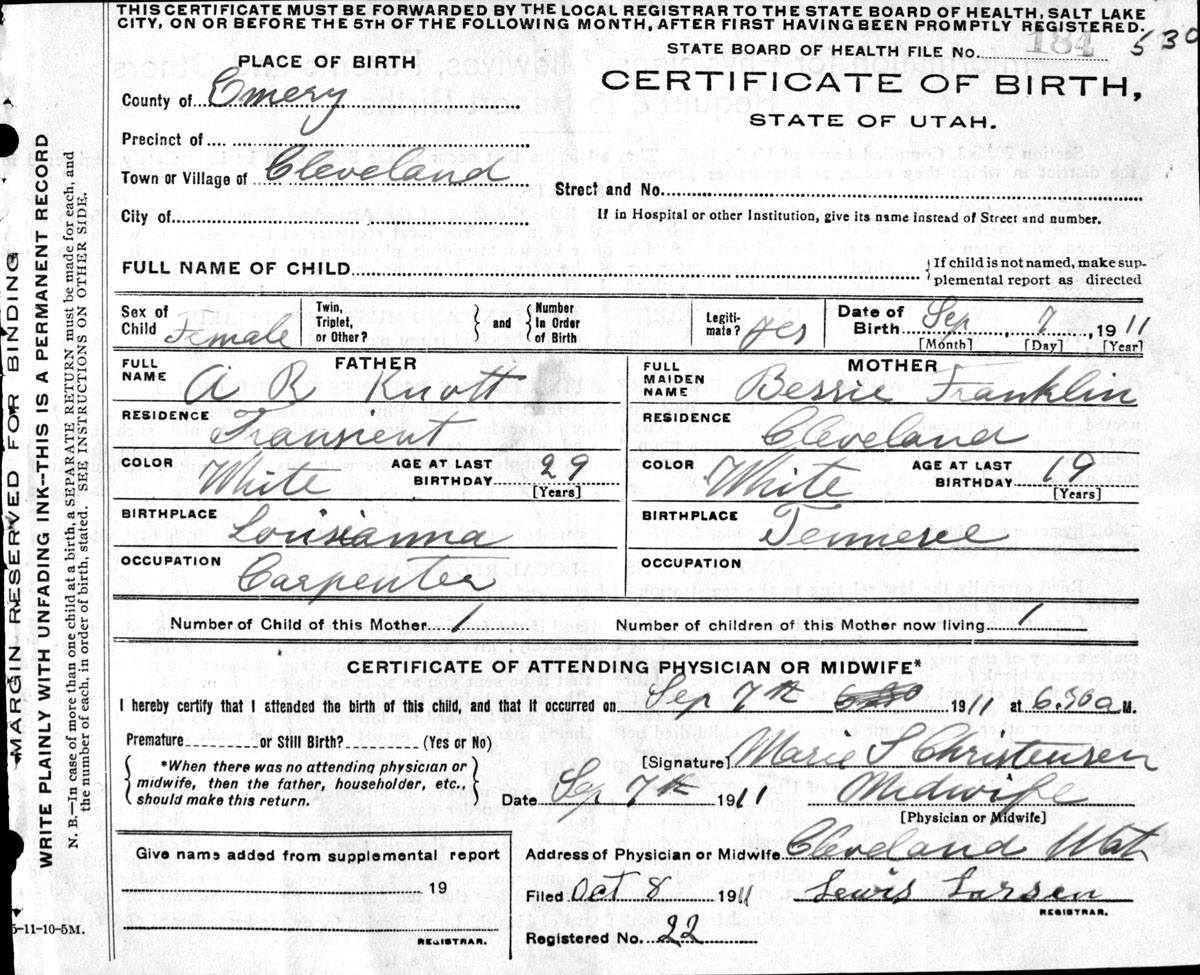 THIS CERTIFICATE MUST BE FORWARDED BY THE LOCAL REGISTRAR TO THE STATE BOARD OF HEALTH, SALT LAKE
CITY, ON OR BEFORE THE 5TH OF THE FOLLOWING MONTH, AFTER FIRST HAVING BEEN PROMPTLY REGISTERED.
STATE BOARD OF HEALTH FILE No. 184 530
PLACE OF BIRTH
CERTIFICATE OF BIRTH,
STATE OF UTAH.
County of Emery
Precinct of
Town or Village of Cleveland
Street and No.
City of
If in Hospital or other Institution, give its name instead of Street and number.
FULL NAME OF CHILD
{If child is not named, make sup-
plemental report as directed
Sex of Child Female
Twin, Triplet, or Other? { and } Number In Order of Birth
Legiti-mate? yes
Date of Birth Sep 7, 1911
[Month] [Day] [Year]
FATHER
FULL NAME A R Knott
RESIDENCE Transient
COLOR White AGE AT LAST BIRTHDAY 29 [Years]
BIRTHPLACE Louisianna
OCCUPATION Carpenter
MOTHER
FULL MAIDEN NAME Bessie Franklin
RESIDENCE Cleveland
COLOR White AGE AT LAST BIRTHDAY 19 [Years]
BIRTHPLACE Tennesee
OCCUPATION
Number of Child of this Mother 1 Number of children of this Mother now living 1
CERTIFICATE OF ATTENDING PHYSICIAN OR MIDWIFE*
I hereby certify that I attended the birth of this child, and that it occurred on Sep 7th 1911 at 6.30 a M.
Premature or Still Birth? (Yes or No)
{*When there was no attending physician or
midwife, then the father, householder, etc.,
should make this return.}
[Signature] Marie S Christensen
Date Sep 7th 1911 Midwife
[Physician or Midwife]
Give name added from supplemental report
19
REGISTRAR.
Address of Physician or Midwife Cleveland Utah
Filed Oct 8 1911 Lewis Larsen
REGISTRAR.
Registered No. 22
5-11-10-5M.
MARGIN RESERVED FOR BINDING
WRITE PLAINLY WITH UNFADING INK--THIS IS A PERMANENT RECORD
N. B.—In case of more than one child at a birth, a SEPARATE RETURN must be made for each, and
the number of each, in order of birth, stated. SEE INSTRUCTIONS ON OTHER SIDE.